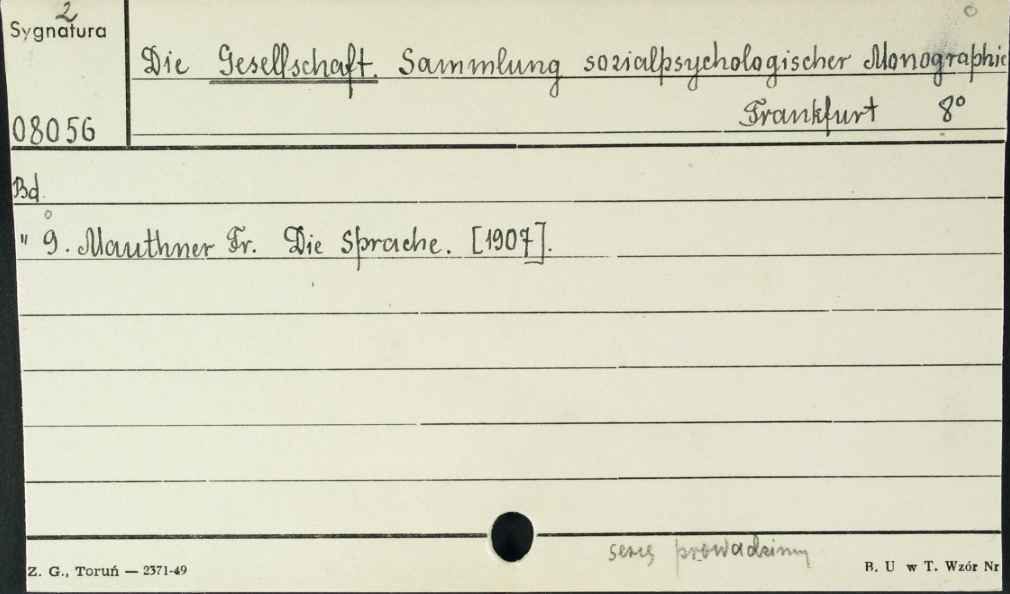 2
Sygnatura
Die Gesellschaft. Sammlung sozialpsychologischer Monographie
Frankfurt 8°
08056
Bd.
" 9. Mauthner Fr. Die Sprache. [1907].
serię prowadzimy
Z. G., Toruń — 2371-49
B. U w T. Wzór Nr